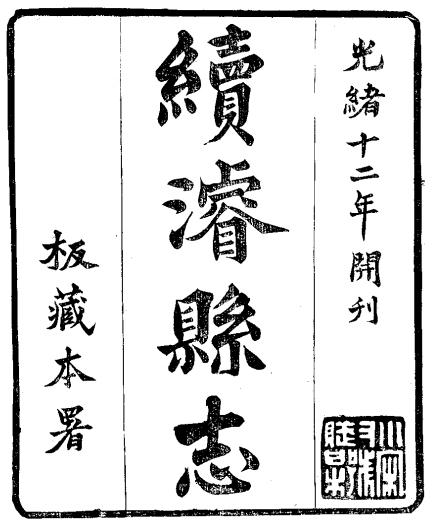 光緒十二年開刊
續濬縣志
板藏本署